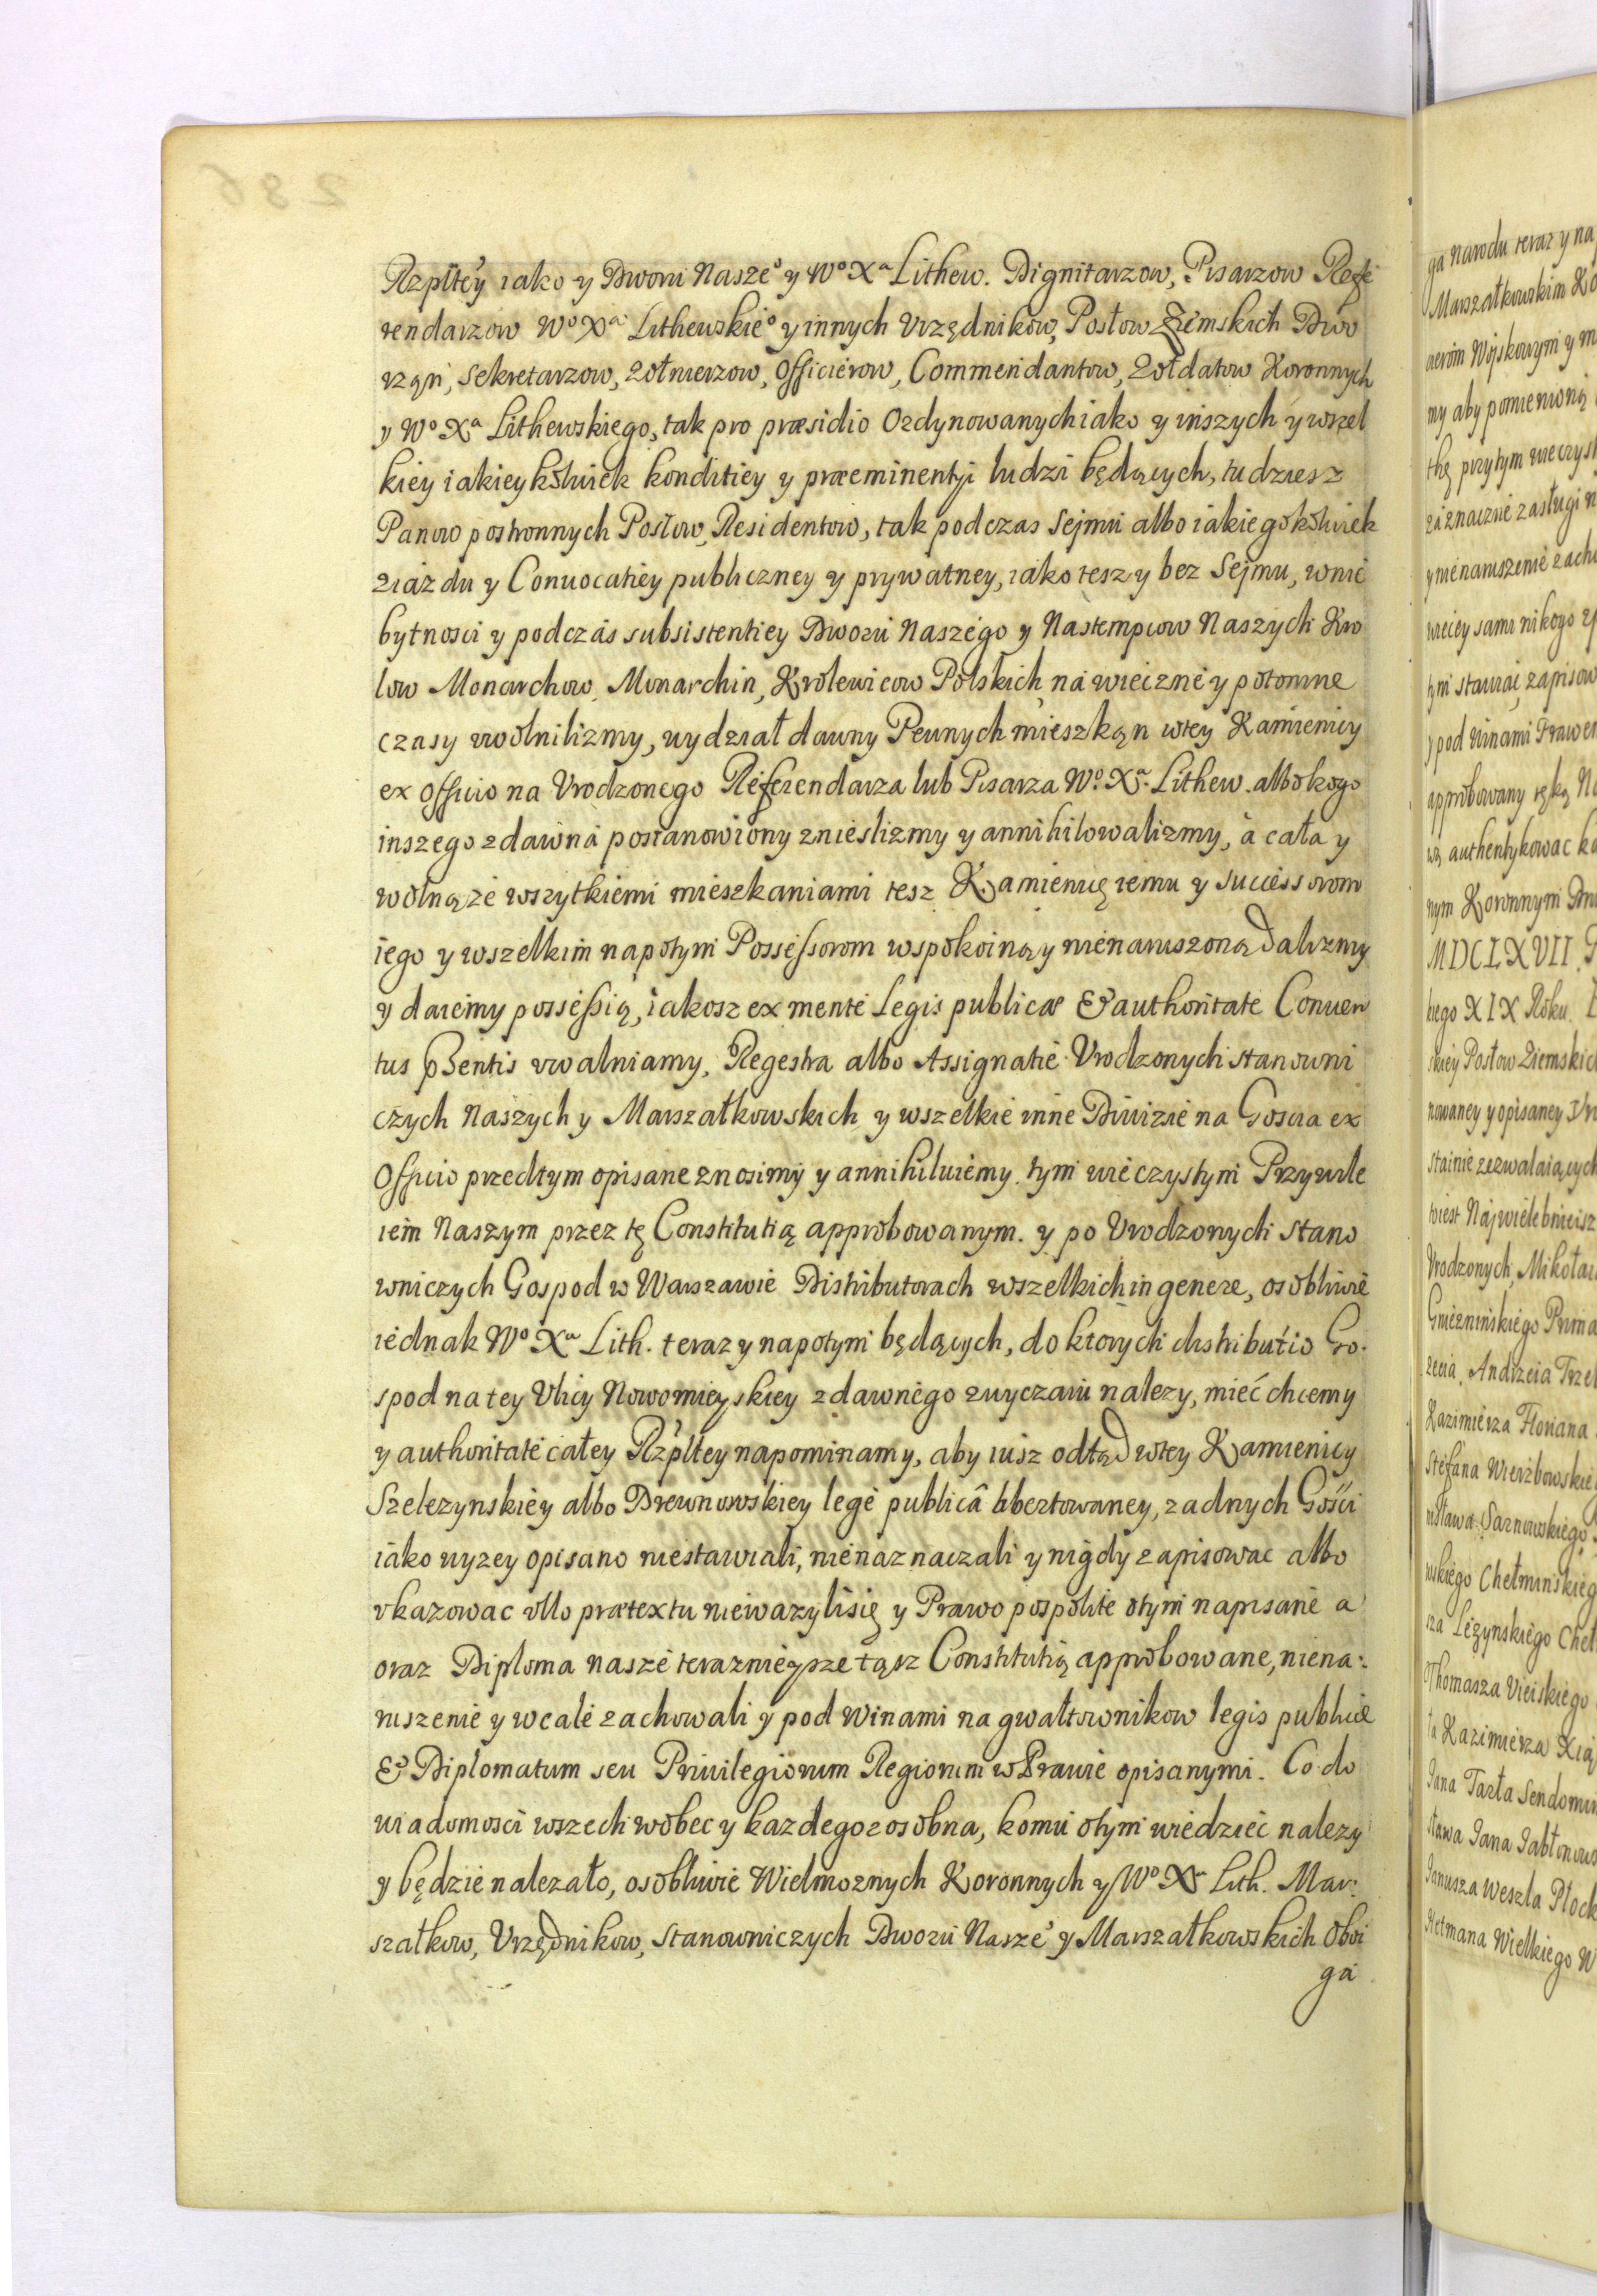 Rzpltey iako y Dworu Nasze° y W° Xa Lithew. Dignitarzow, Pisarzow Refe
rendarzow W° Xa Lithewskie° y innych Vrzędnikow, Posłow Ziemskich Dwo
rząn, Sekretarzow, Zołnierzow, Officierow, Commendantow, Zołdatow Koronnych
y W° Xa Lithewskiego, tak pro præsidio Ordynowanych iako y inszych y wszel
kiey iakieykolwiek konditiey y præeminentyi ludzi będących, tudziesz
Panow postronnych Posłow, Residentow, tak podczas Sejmu albo iakiegokolwiek
ziazdu y Conuocatiey publiczney y prywatney, iako tesz y bez Sejmu, wnie
bytnosci y podczas subsistentiey Dworu Naszego y Nastempcow Naszych Kro
low Monarchow, Monarchin, Krolewicow Polskich na wieczne y potomne
czasy vwolnilizmy, wydział dawny Pewnych mieszkąn wtey Kamienicy
ex officio na Vrodzonego Referendarza lub Pisarza W° Xa Lithew. albo kogo
inszego zdawna postanowiony znieslizmy y annihilowalizmy, a cała y
wolną ze wszytkiemi mieszkaniami tesz Kamienicę iemu y successorom
iego y wszelkim napotym Possessorom wspokoiną y nienaruszoną dalizmy
y daiemy possessią, iakosz ex mente Legis publicæ & authoritate Conuen
tus pßentis vwalniamy, Regestra albo Assignatie Vrodzonych Stanowni
czych Naszych y Marszałkowskich y wszelkie inne Diuizie na Goscia ex
Officio przedtym opisane znosimy y annihiluiemy. tym wieczystym Przywile
iem Naszym przez tę Constitutią approbowanym. y po Vrodzonych Stano
wniczych Gospod w Warszawie Distributorach wszelkich in genere, osobliwie
iednak W° Xa Lith. teraz y napotym będących, do ktorych distributio Go.
spod na tey Vlicy Nowomieyskiey zdawnego zwyczaiu nalezy, mieć chcemy
y authoritate całey Rzpltey napominamy, aby iusz odtąd wtey Kamienicy
Szelezynskiey albo Drewnowskiey lege publicâ libertowaney, zadnych Gosci
iako wyzey opisano niestawiali, nienaznaczali y nigdy zapisowac albo
vkazowac vllo prætextu niewazylisię y Prawo pospolite otym napisane a
oraz Diploma nasze teraznieysze tąsz Constitutią approbowane, niena:
ruszenie y wcale zachowali y pod Winami na gwałtownikow legis publicæ
& Diplomatum seu Priuilegiorum Regiorum w Prawie opisanymi. Co do
wiadomosci wszech wobec y kazdego zosobna, komu otym wiedziec nalezy
y będzie nalezało, osobliwie Wielmoznych Koronnych y W° Xa Lith. Mar:
szałkow, Vrzędnikow, Stanowniczych Dworu Nasze° y Marszałkowskich Oboi
ga
ga Narodu teraz y na
Marszałkowskim Ko
nerom Woyskowym y in
my aby pomienioną
tkę przytym wieczyst
zá znaczne zasługi n
y nienaruszenie zach
wiecey sami nikogo z
tym stawiac, zapisow
y pod winami Prawem
approbowany ręką Na
wą authentykowac ka
nym Koronnym Dni
MDCLXVII. P
kiego XIX Roku.
skiey Posłow Ziemskich
nowaney y opisaney
stainie zezwalaiących
iest Najwielebnieisz
Vrodzonych, Mikołai
Gnieznińskiego Prima
zecia, Andrzeia Trze
Kazimierza Floriana
Stefana Wierzbowskie
nisława Sarnowskiego
wskiego Chełminskieg
za Lezynskiego Cheł
Thomasza Vieiskiego
ła Kazimierza Xią
Jana Tarła Sendomir
sława Jana Jabłonows
Janusza Wessla Płock
Hetmana Wielkiego W